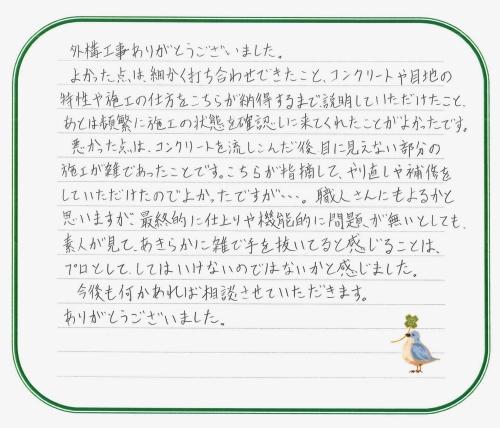 外構工事ありがとうございました。
よかった点は、細かく打ち合わせできたこと、コンクリートや目地の
特性や施工の仕方をこちらが納得するまで説明していただけたこと、
あとは頻繁に施工の状態を確認しに来てくれたことがよかったです。
悪かった点は、コンクリートを流しこんだ後、目に見えない部分の
施工が雑であったことです。こちらが指摘して、やり直しや補修を
していただけたので上かったですが・・・。職人さんにもよるかと
思いますが、最終的に仕上りや機能的に問題が無いとしても、
素人が見て、あきらかに雑で手を抜いてると感じることは、
プロとして、してはいけないのではないかと感じました。
今後も何かあれば相談させていただきます。
ありがとうございました。